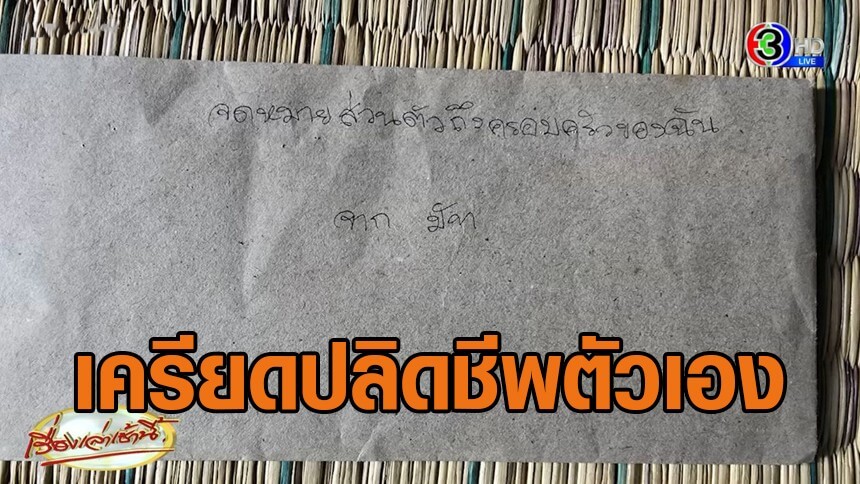 3 HD
LIVE
จดหมายส่วนตัวถึงครอบครัวของฉัน
จาก
เครียดปลิดชีพตัวเอง
เรื่องเล่าเช้านี้